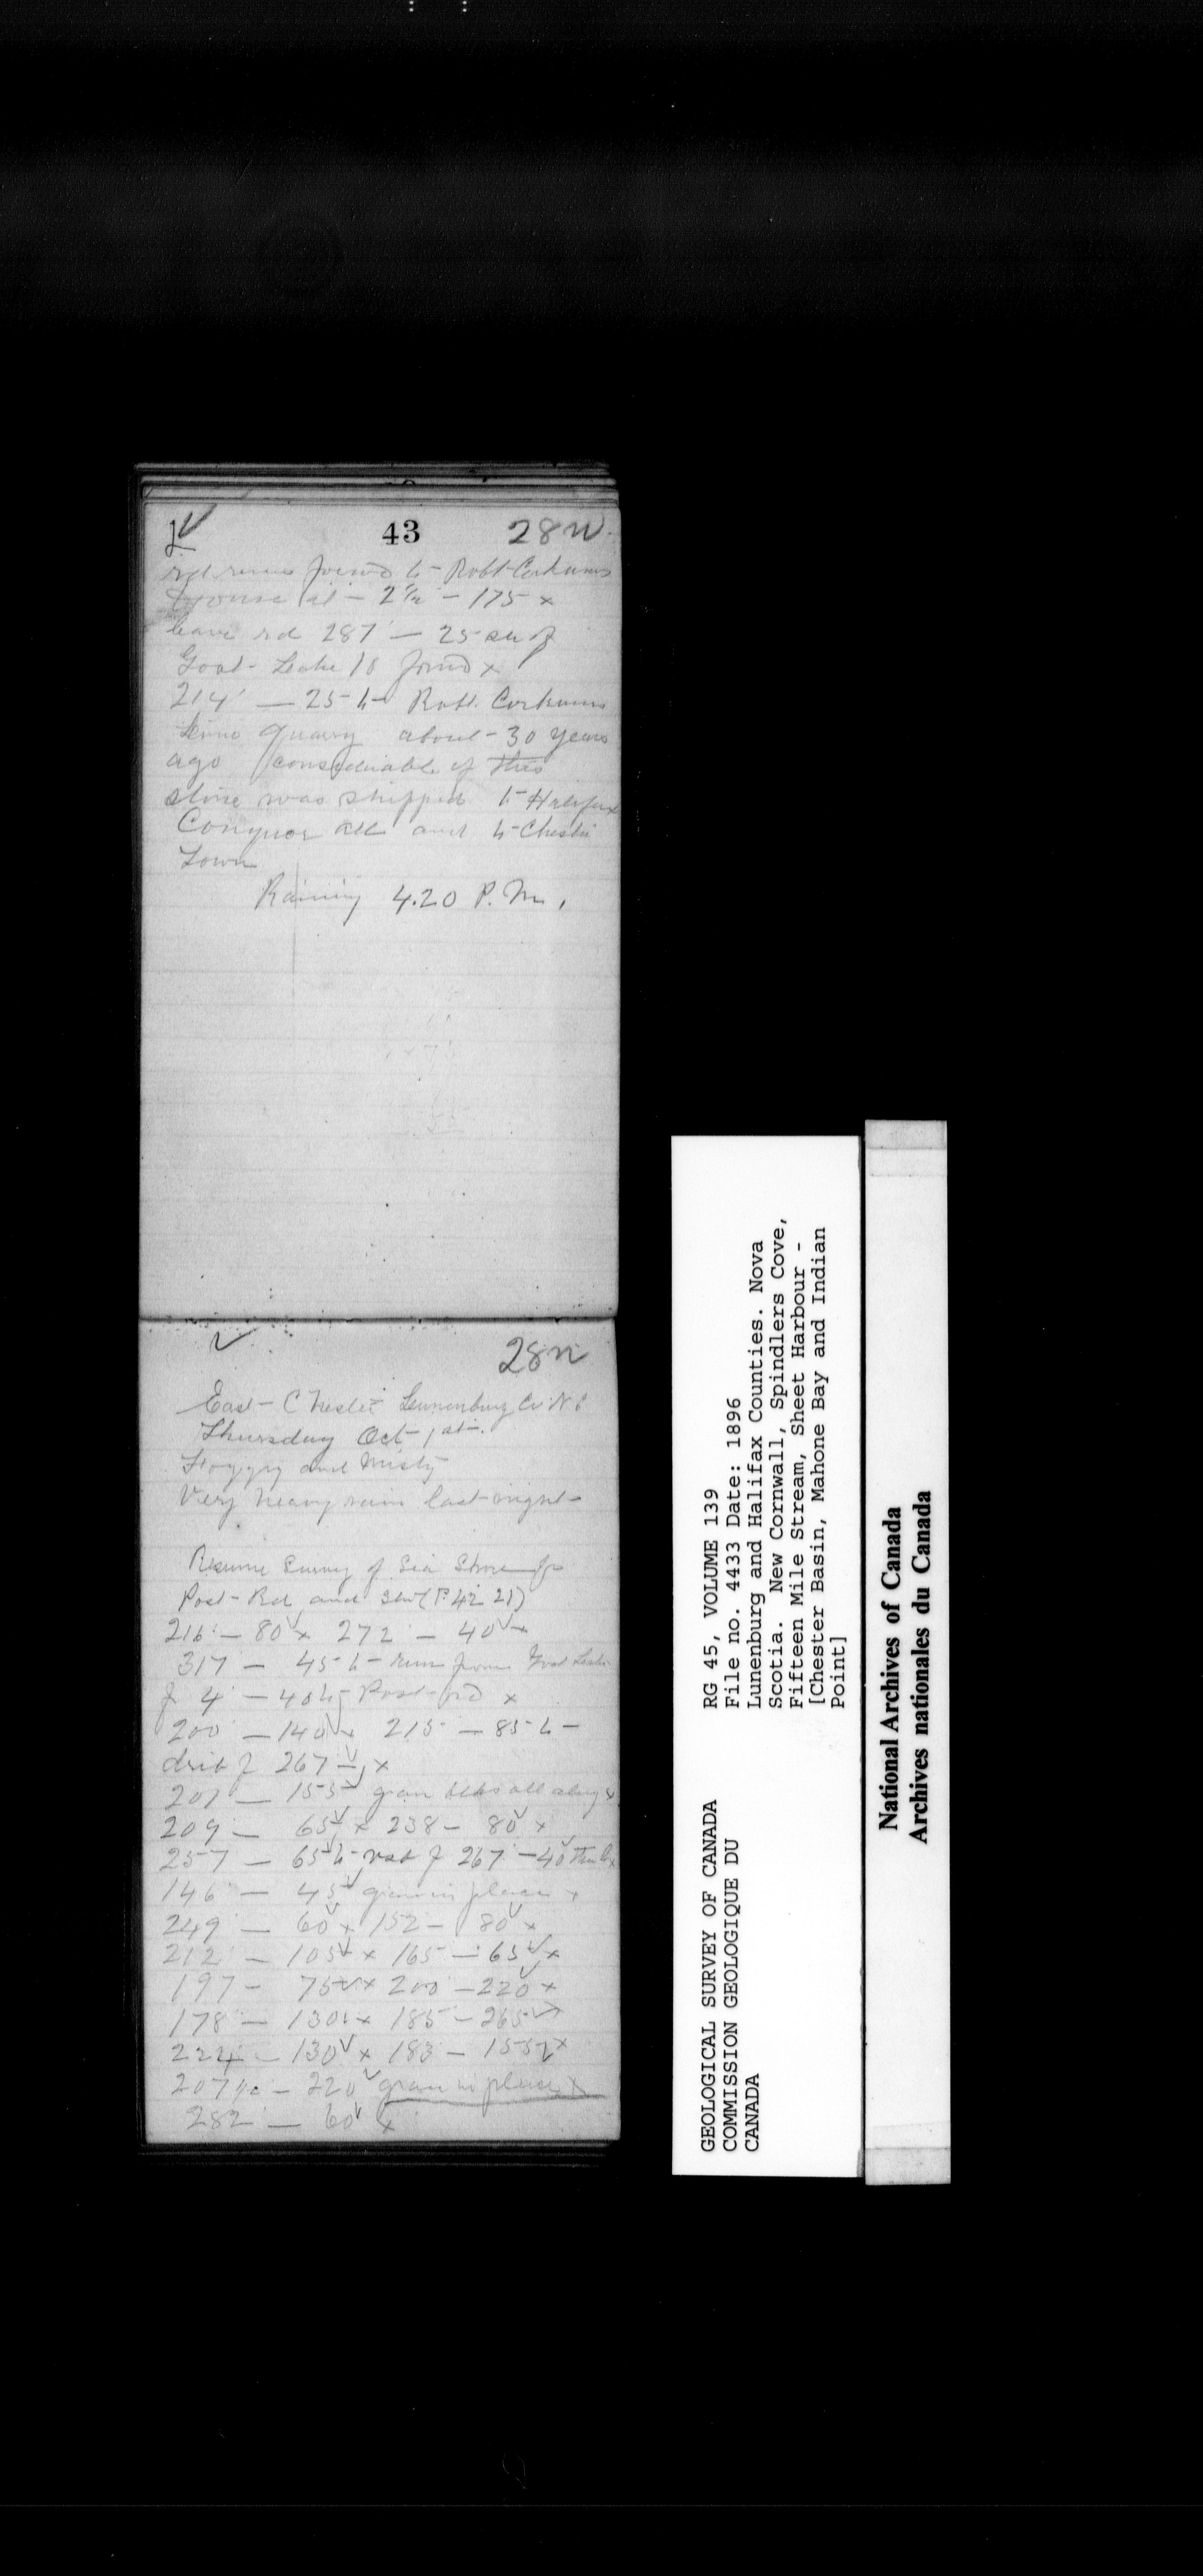 43 28N
rd runs forwd to Robt Corkums
House at - 2½ - 175 x
leave rd 287 - 25 sw of
Goat Lake
214 - 25 to Robt. Corkums
Lime Quarry about 30 years
ago considerable of this
stone was shipped to Halifax
Conquer all and to Chester
Town
Raining 4.20 P.M.
28N
East Chester Lunenburg Co N S
Thursday Oct 1st.
Foggy and Misty
Very heavy rain last night
Resume Survey of Sea Shore
Post Rd and (P. 42 21)
216 - 80 x 272 - 40 x
317 - 45 to run from Goat Lake
4 - 40 to Post rd x
200 - 140 x 215 - 85 to
267 x
201 - 155 gran blks all along x
209 - 65 x 238 - 80 x
257 - 65 to 267 - 40
146 - 45 gran in place x
249 - 60 x 152 - 80 x
212 - 105 x 165 - 65 x
197 - 75 x 200 - 220 x
178 - 130 x 185 - 265 x
224 - 130 x 183 - 155 x
207½ - 220 gran in place x
282 - 60 x
GEOLOGICAL SURVEY OF CANADA
COMMISSION GEOLOGIQUE DU
CANADA
RG 45, VOLUME 139
File no. 4433 Date: 1896
Lunenburg and Halifax Counties. Nova
Scotia. New Cornwall, Spindlers Cove,
Fifteen Mile Stream, Sheet Harbour -
[Chester Basin, Mahone Bay and Indian
Point]
National Archives of Canada
Archives nationales du Canada